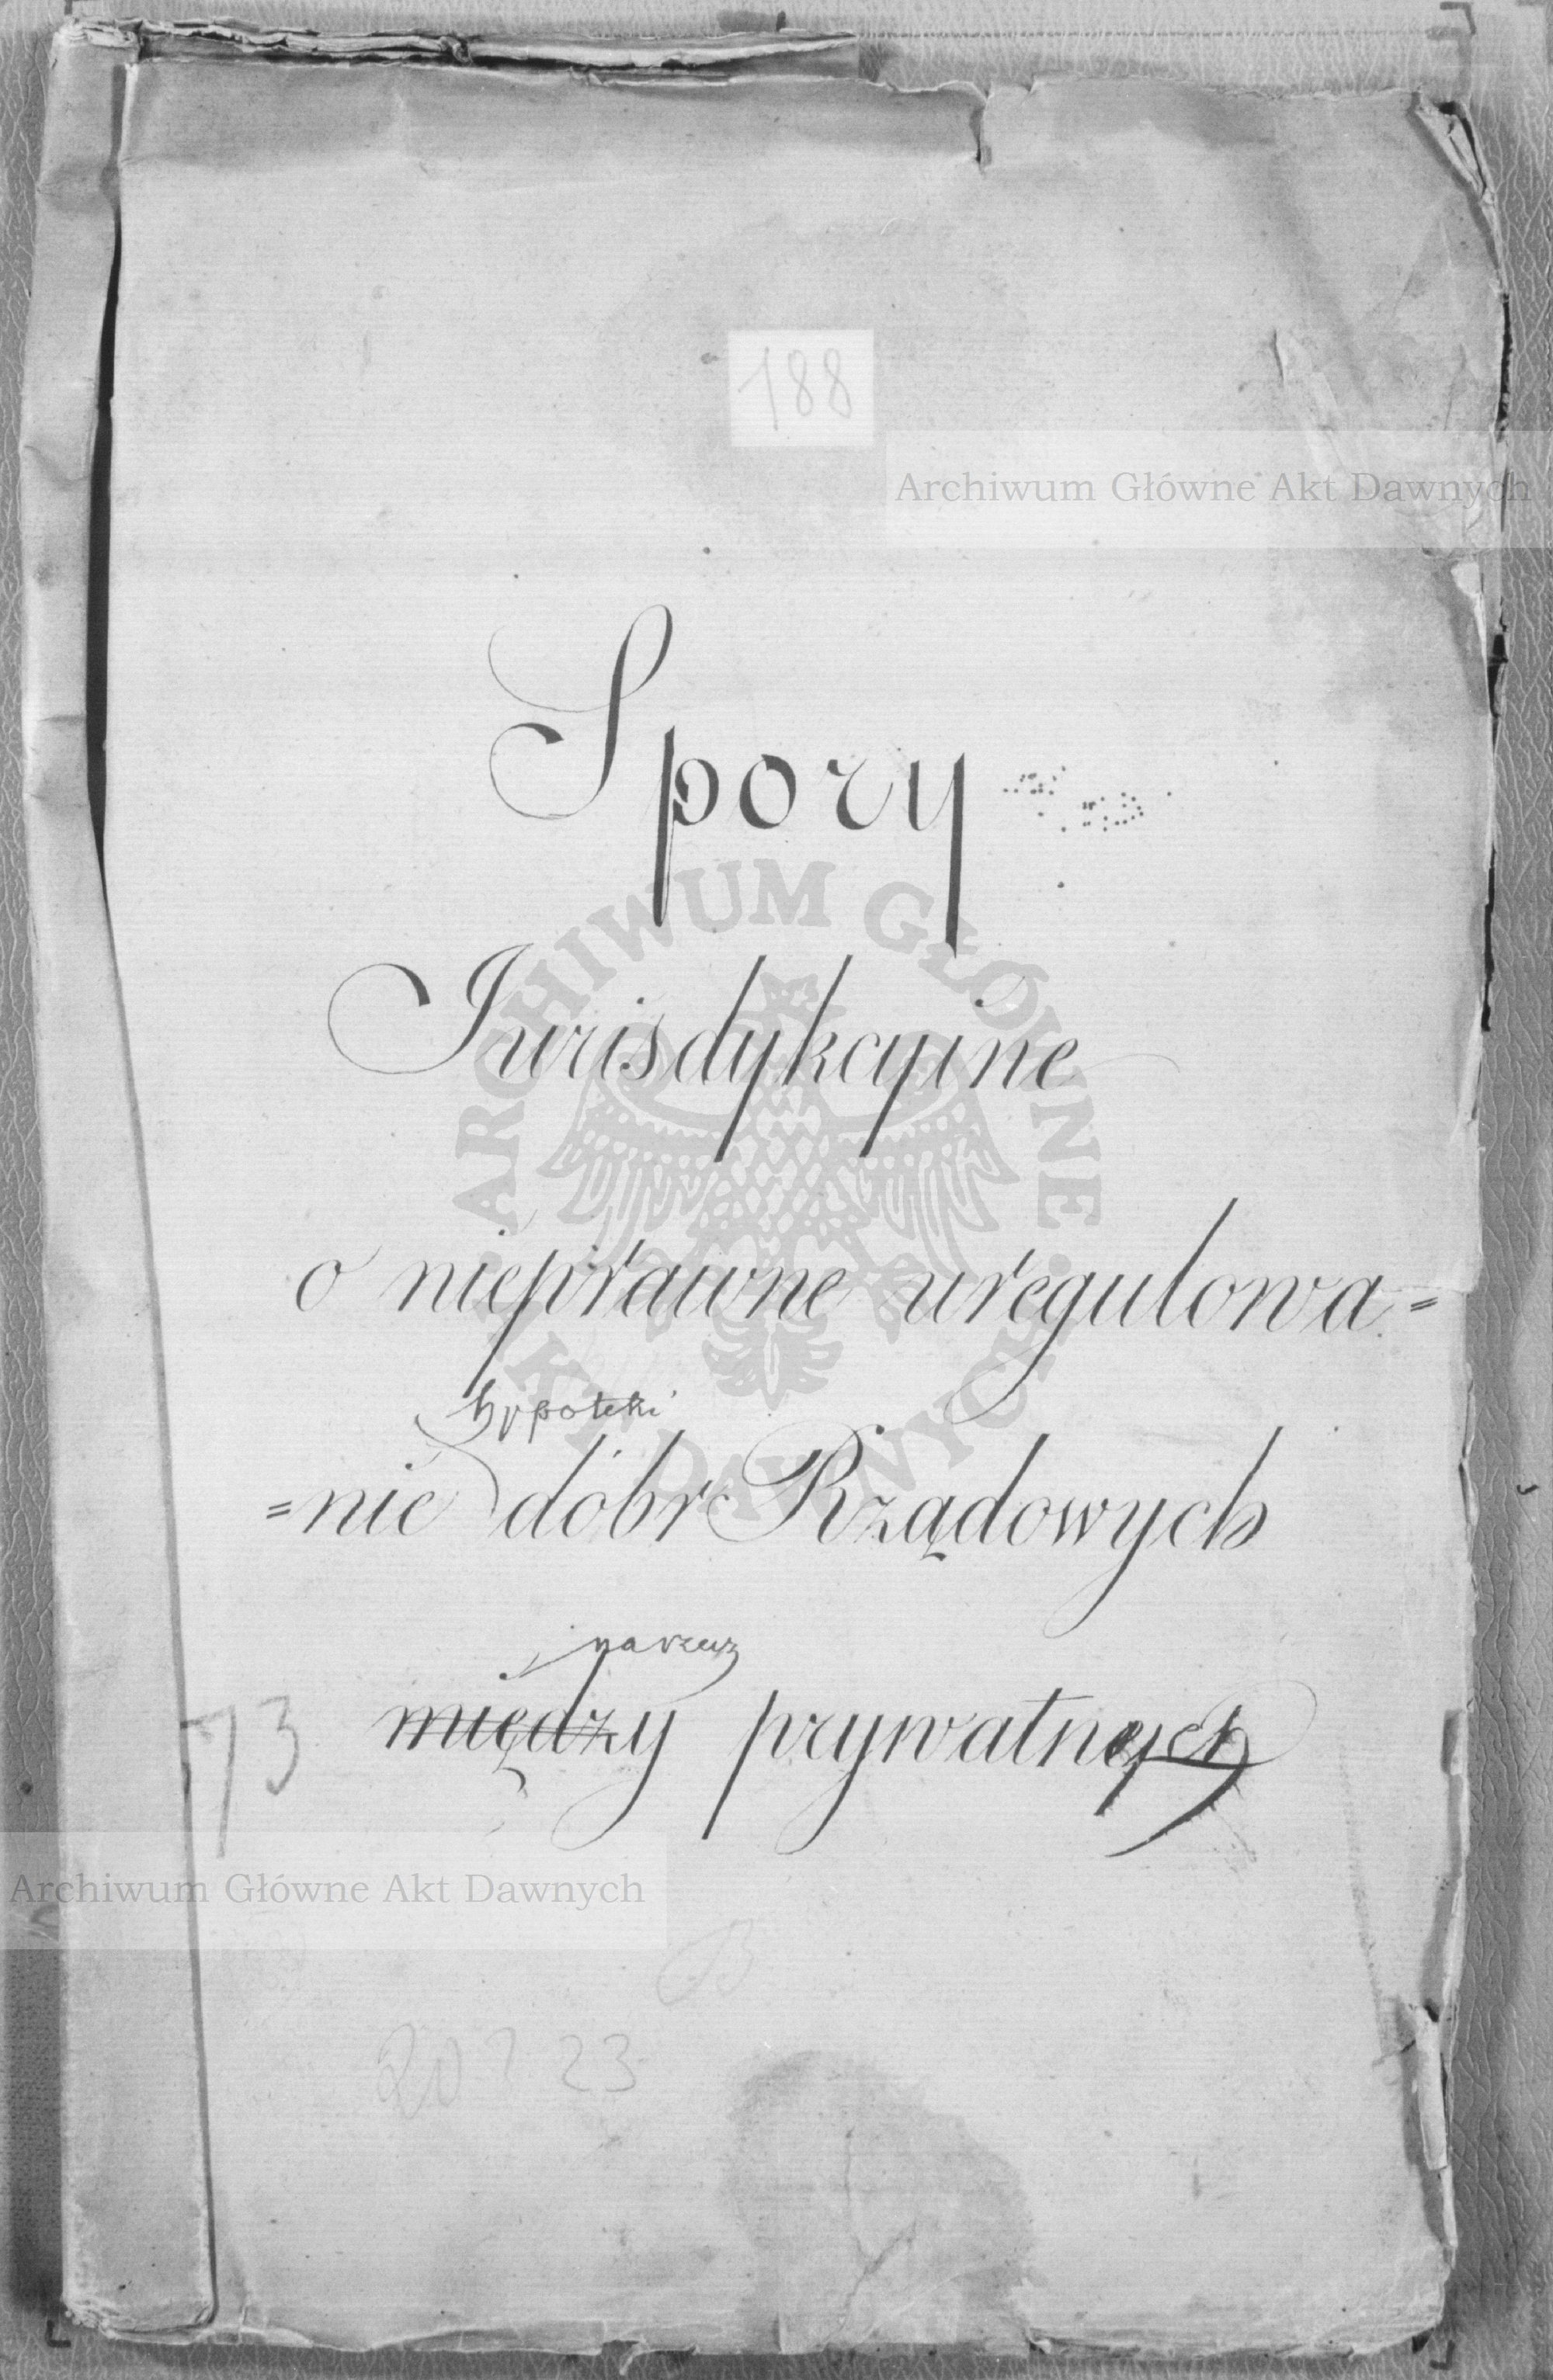 188
Archiwum Główne Akt Dawnych
Spory
Jurisdykcyine
o nieprawne uregulowa=
hypoteki
=nie dóbr Rządowych
na rzecz
między prywatnych
73
Archiwum Główne Akt Dawnych
B
ARCHIWUM GŁÓWNE AKT DAWNYCH